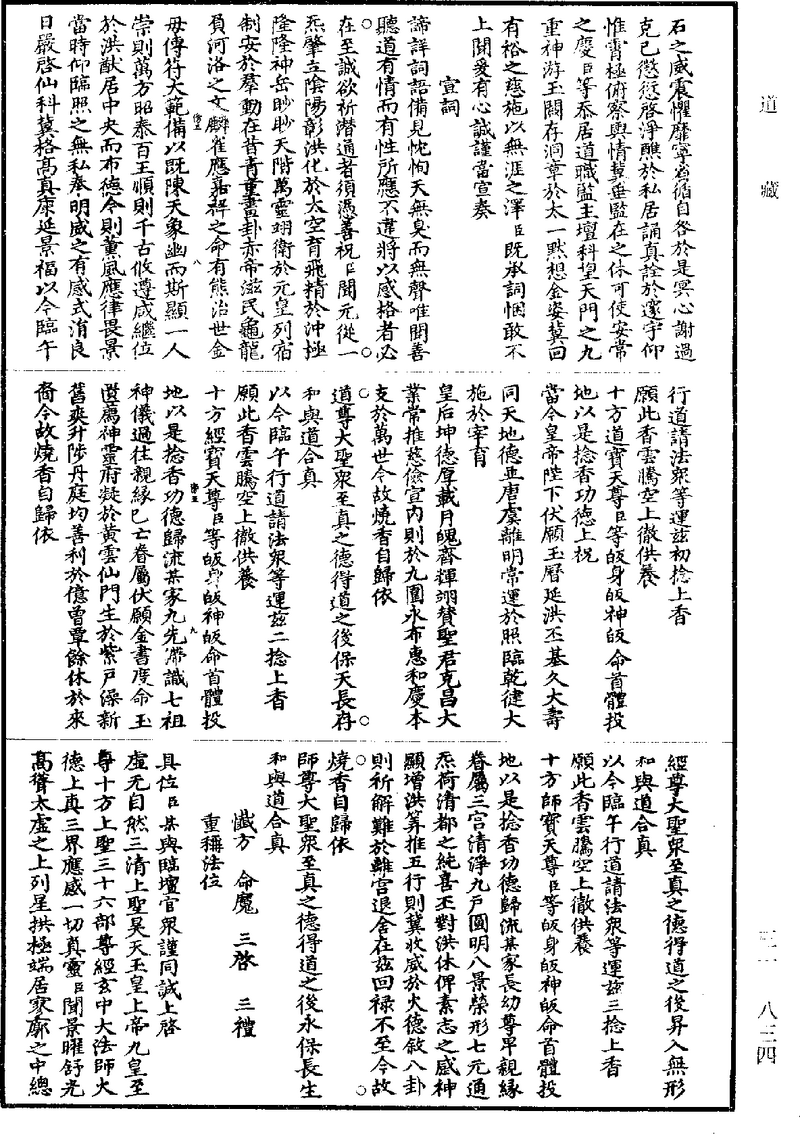 道藏
三一 八三四
石之威震懼靡寧省循自咎於是冥心謝過
克己懲愆啓淨醮於私居誦真詮於邃宇仰
惟霄極俯察輿情冀垂監在之休可使安常
之慶臣等忝居道職監主壇科望天門之九
重神游玉闕存洞章於太一默想金姿冀回
有裕之慈施以無涯之澤臣既承詞悃敢不
上聞爰有心誠謹當宣奏
宣詞
諦詳詞語備見忱恂天無臭而無聲唯聞善
聽道有情而有性所應不違將以感格者必
在至誠欲祈潛通者須憑善祝臣聞元從一
炁肇立陰陽彰洪化於太空育飛精於沖極
隆隆神岳眇眇天階萬靈翊衛於元皇列宿
制安於羣動在昔青童畫卦赤帝滋民龜龍
負河洛之文麟雀應嘉祥之命有熊治世金
母傳符大範備以既陳天象幽而斯顯一人
崇則萬方昭泰百王順則千古攸遵咸繼位
於洪猷居中央而布德今則薰風應律畏景
當時仰臨照之無私奉明威之有感式涓良
日嚴啓仙科冀格高真康延景福以今臨午
行道請法衆等運茲初捻上香
願此香雲騰空上徹供養
十方道寶天尊臣等皈身皈神皈命首體投
地以是捻香功德上祝
當今皇帝陛下伏願玉曆延洪丕基久大壽
同天地德並唐虞離明常運於照臨乾健大
施於宰育
皇后坤德厚載月魄齊輝翊贊聖君克昌大
業常推慈儉宣内則於九圍永布惠和慶本
支於萬世今故燒香自歸依
道尊大聖衆至真之德得道之後保天長存
和與道合真
以今臨午行道請法衆等運茲二捻上香
願此香雲騰空上徹供養
十方經寶天尊臣等皈身皈神皈命首體投
地以是捻香功德歸流某家九先滯識七祖
神儀過往親緣已亡眷屬伏願金書度命玉
匱薦神靈府凝於黄雲仙門生於紫戸濠新
舊爽升陟丹庭均善利於億曾覃餘休於來
裔今故燒香自歸依
經尊大聖衆至真之德得道之後昇入無形
和與道合真
以今臨午行道請法衆等運茲三捻上香
願此香雲騰空上徹供養
十方師寶天尊臣等皈身皈神皈命首體投
地以是捻香功德歸流某家長幼尊卑親緣
眷屬三宫清淨九戸圓明八景榮形七元通
炁荷清都之純喜丕對洪休俾素志之感神
顯增洪筭推五行則冀收威於火德敘八卦
則祈解難於離宫退舍在茲回祿不至今故
燒香自歸依
師尊大聖衆至真之德得道之後永保長生
和與道合真
懺方 命魔 三啓 三禮
重稱法位
具位臣某與臨壇官衆謹同誠上啓
虛无自然三清上聖昊天玉皇上帝九皇至
尊十方上聖三十六部尊經玄中大法師火
德上真三界應感一切真靈臣聞景曜舒光
高聳太虛之上列星拱極端居寥廓之中總